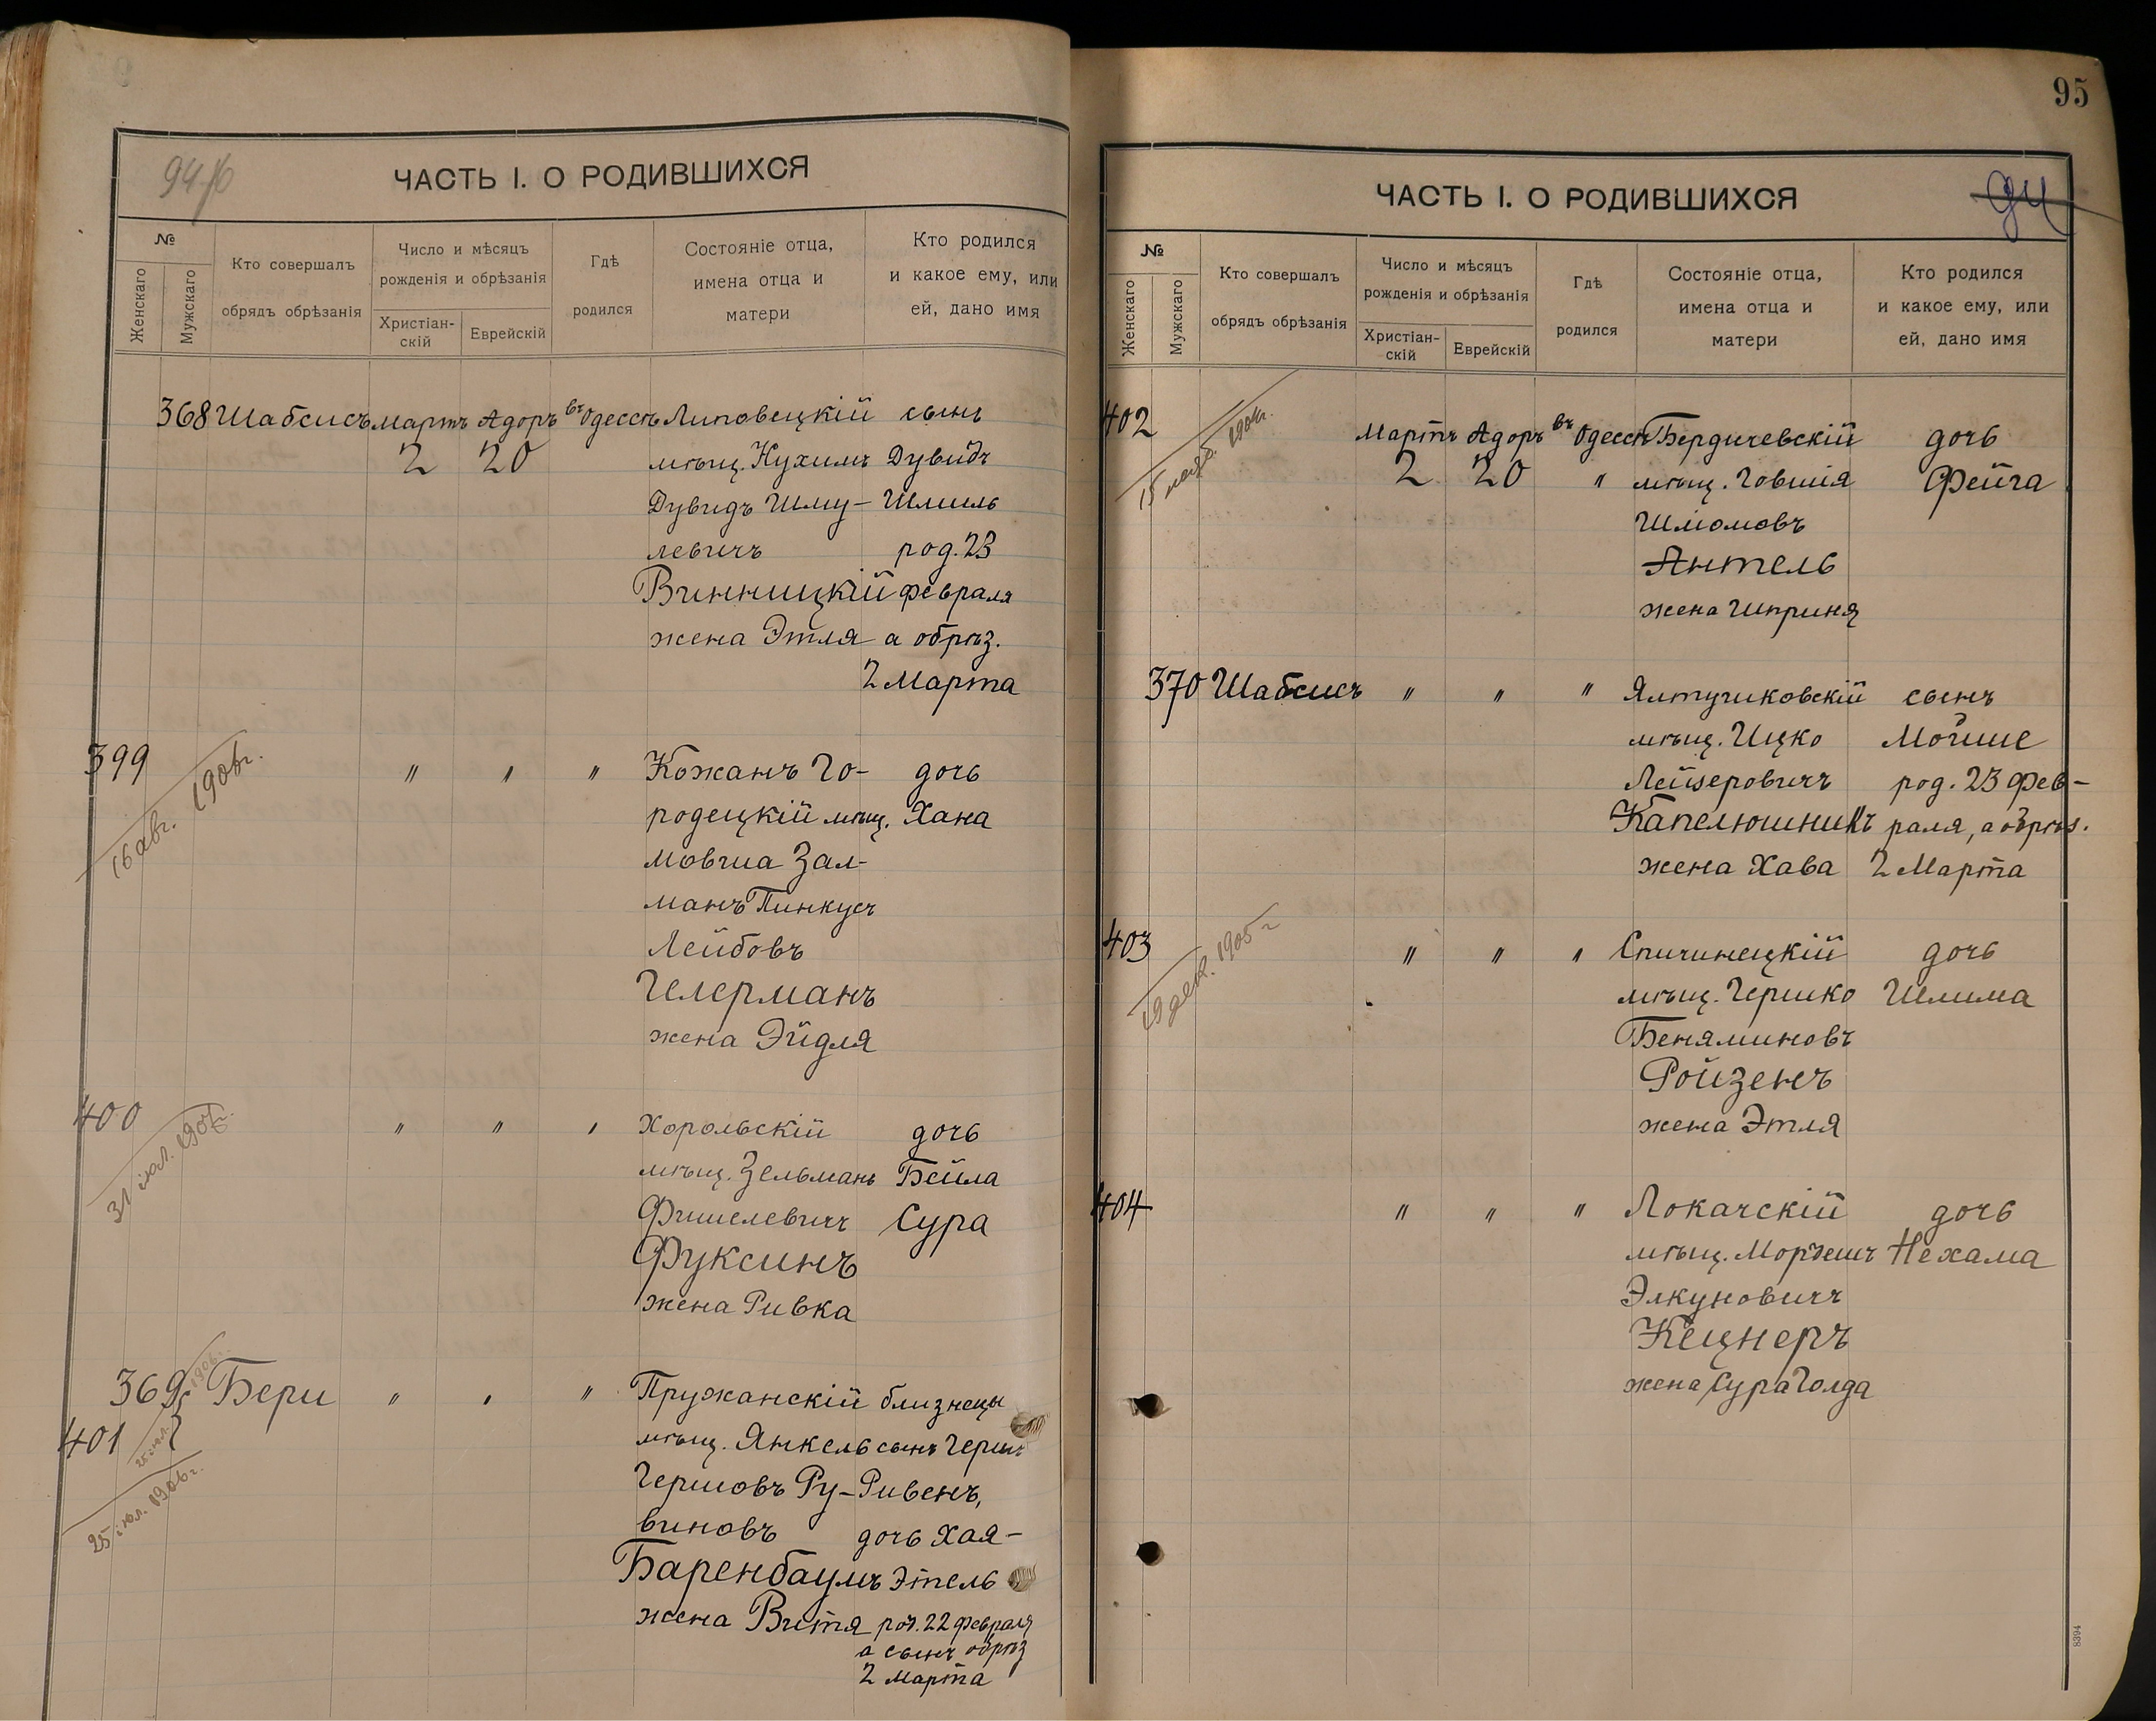 ЧАСТЬ I. О РОДИВШИХСЯ
№
Женскаго
Мужскаго
Кто совершалъ
обрядъ обрѣзанія
Число и мѣсяцъ
рожденія и обрѣзанія
Христіан-
скій
Еврейскій
Гдѣ
родился
Состояніе отца,
имена отца и
матери
Кто родился
и какое ему, или
ей, дано имя
368 Шабсисъ мартъ Адоръ въ Одессѣ Липовецкій сынъ
2 20 мѣщ. Нухимъ Дувидъ
Дувидъ Шму- Шмиль
левичъ род. 23
Винницкій февраля
жена Этля а обрѣз.
2 Марта
399 " " " Кожанъ Го- дочь
16 авг. 1906г.
родецкій мѣщ. Хана
Мовша Зал-
манъ Пинкусъ
Лейбовъ
Гелерманъ
жена Эйдля
400 " " " Хорольскій дочь
31 іюл.
мѣщ. Зельманъ Бейла
Фишелевичъ Сура
Фуксинъ
жена Ривка
369 Бери " " " Пружанскій близнецы
401 мѣщ. Янкель сынъ Герш
25 іюл. 1906г.
Гершовъ Ру- Рывенъ,
виновъ дочь Хая-
Баренбаумъ Этель
жена Витя род. 22 февраля
а сынъ обрѣз
2 Марта
95
ЧАСТЬ I. О РОДИВШИХСЯ
94
№
Женскаго
Мужскаго
Кто совершалъ
обрядъ обрѣзанія
Число и мѣсяцъ
рожденія и обрѣзанія
Христіан-
скій
Еврейскій
Гдѣ
родился
Состояніе отца,
имена отца и
матери
Кто родился
и какое ему, или
ей, дано имя
402 Мартъ Адоръ въ Одессѣ Бердичевскій дочь
2 20 " мѣщ. Говшія Фейга
Шліомовъ
Антель
жена Шприня
370 Шабсисъ " " " Ялтушковскій сынъ
мѣщ. Ицко Мойше
Лейзеровичъ род. 23 Фев-
Капелюшникъ раля, а обрѣз.
жена Хава 2 Марта
403 " " " Спичинецкій дочь
19 дек. 1905 г
мѣщ. Гершко Шлима
Беняминовъ
Ройзенъ
жена Этля
404 " " " Локачскій дочь
мѣщ. Мордешъ Нехама
Элкуновичъ
Кецнеръ
жена Сура Голда
8394